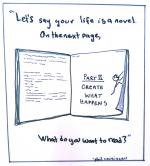 "Let's say your life is a novel.
On the next page,
PART II
CREATE
WHAT
HAPPENS
What do you want to read?"